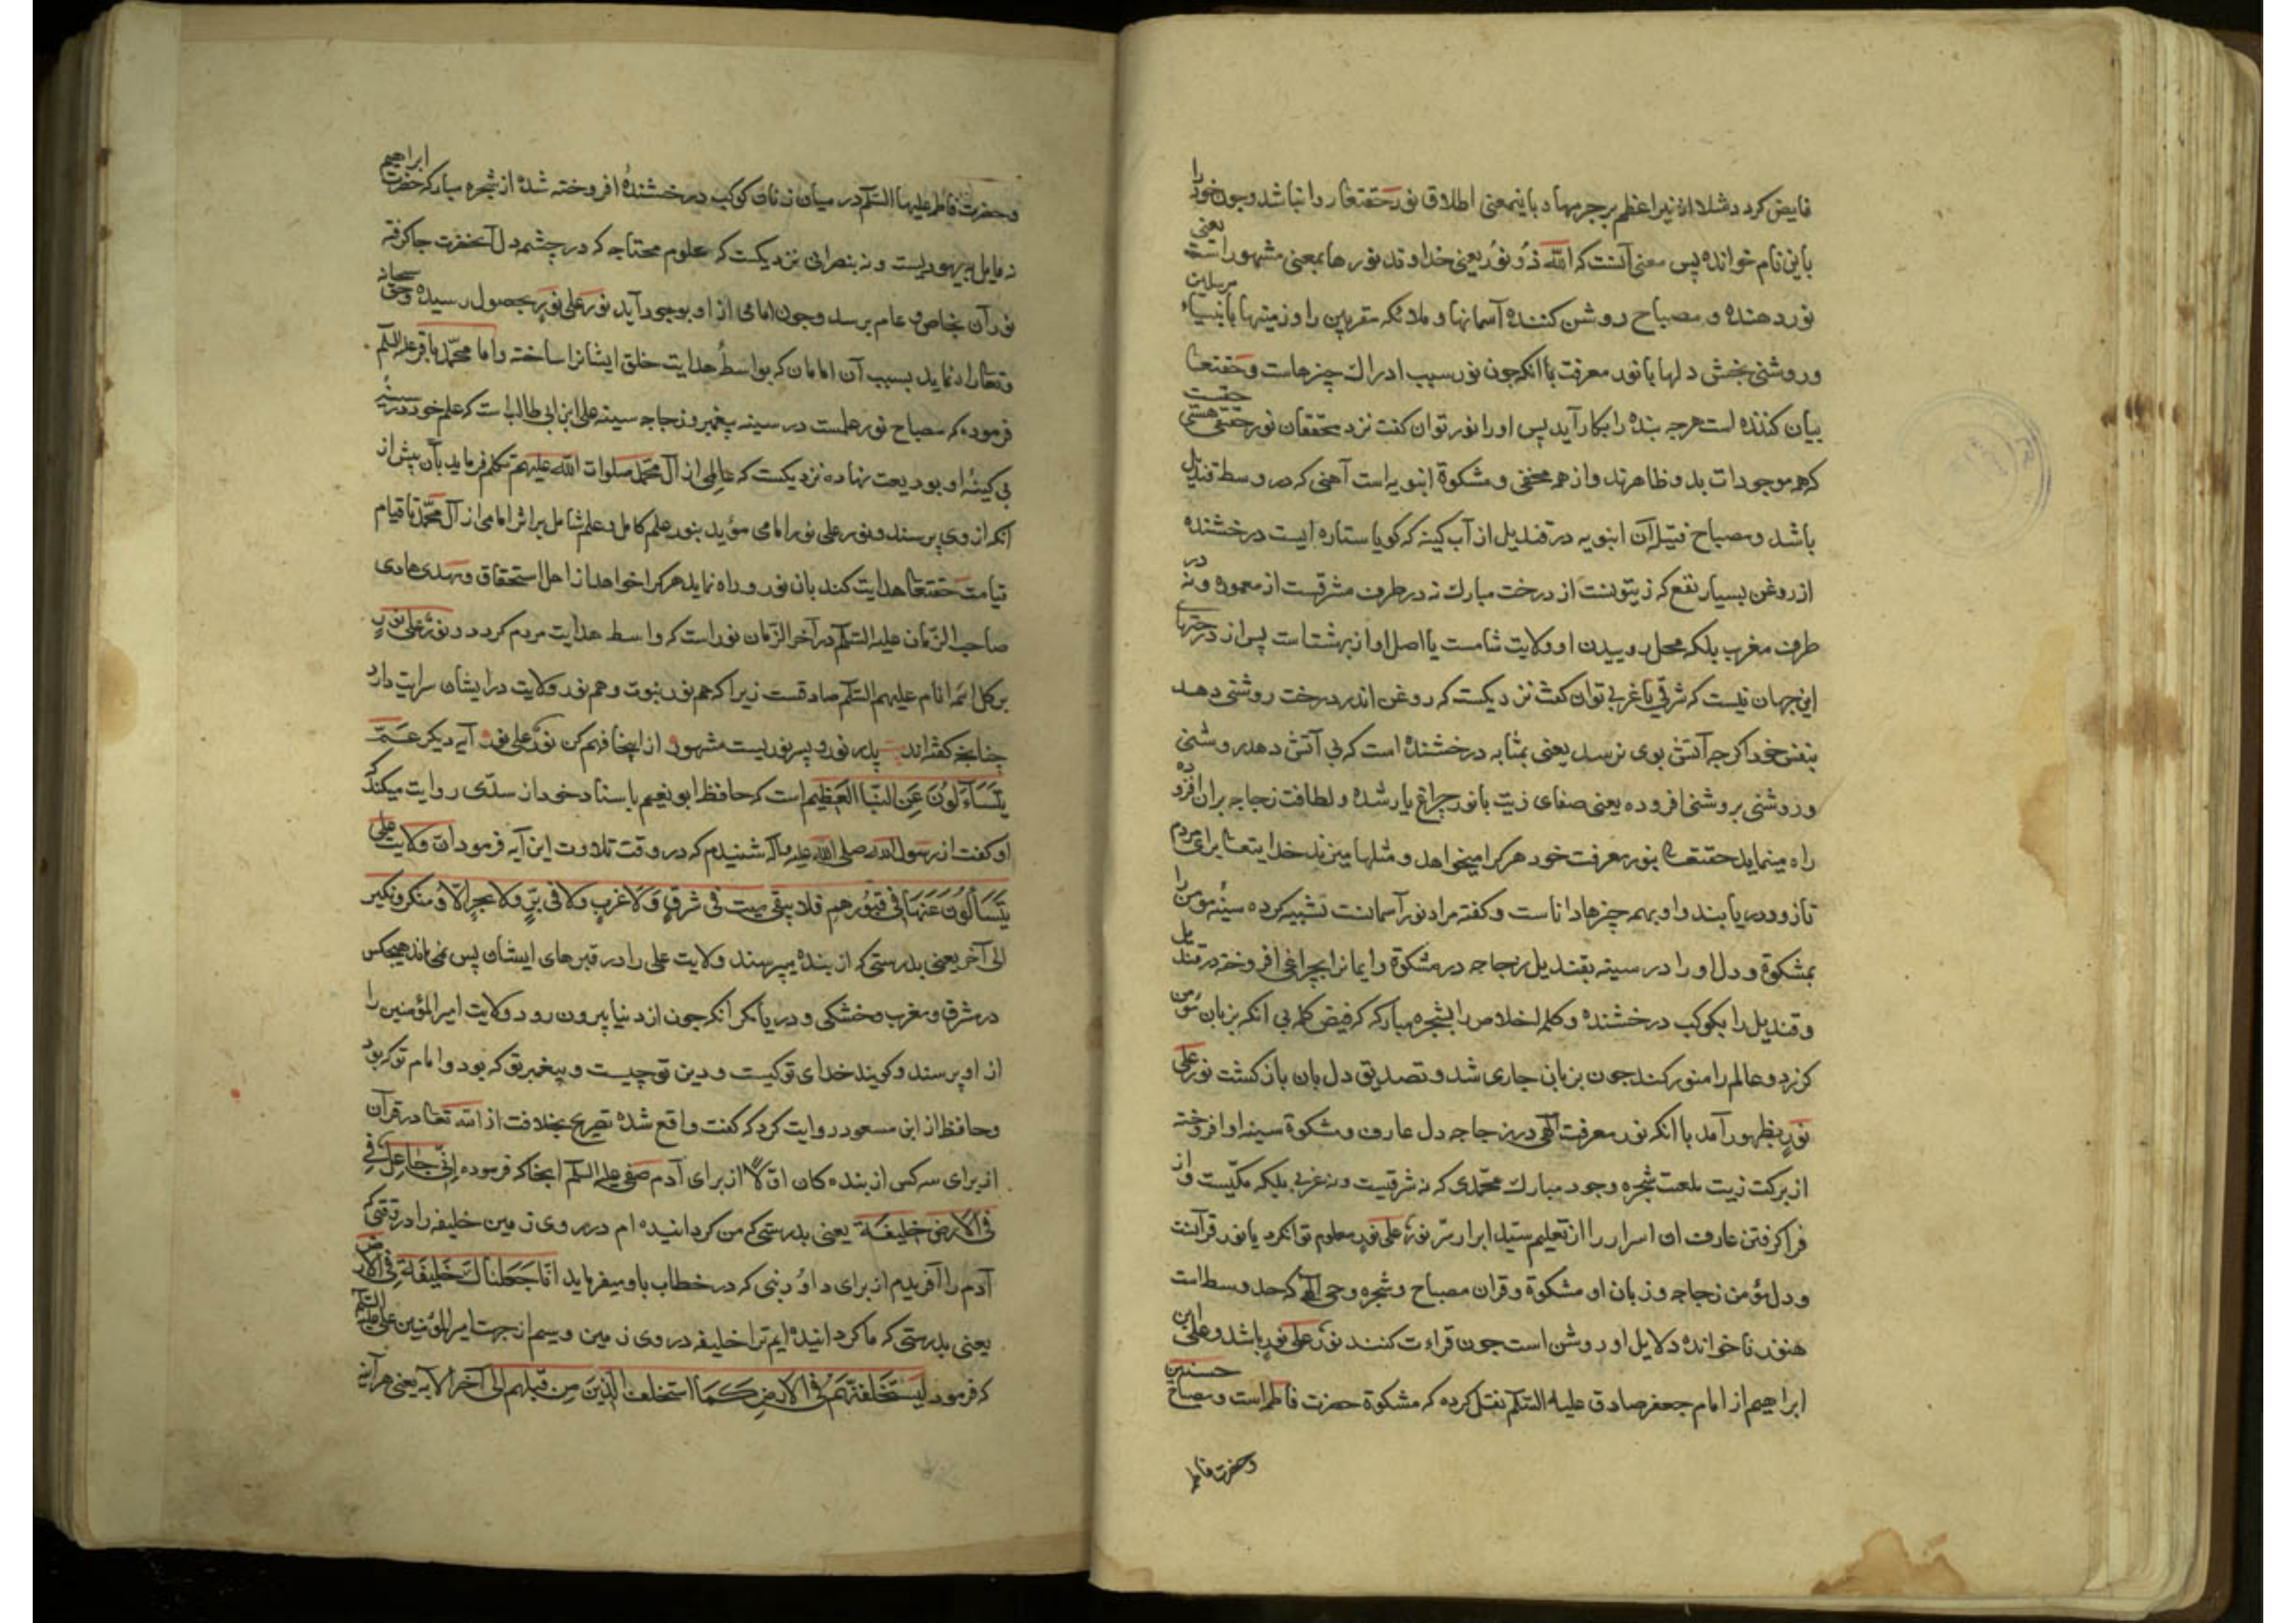 فایض کردد مثلا از نیر اعظم برجرمها و باینمعنی اطلاق نور حقتعا روا نباشد وچون خود را
باین نام خوانده پس معنی آنست که الله ذو نور یعنی خداوند نورها بمعنی مشهور است یعنی
نوردهنده و مصباح روشن کننده آسمانها و ملائکه مقربین را و زمینها بانبیاء مرسلین
و روشنی بخش دلها بانور معرفت یا انکه چون نور سبب ادراک چیزهاست و حقتعا
بیان کننده است هرچه بنده را بکار آید پس او را نور توان کفت نزد محققان نور حقیقی هستی حقیقت
که همه موجودات بدو ظاهرند و از همه مخفی و مشکوة انبوبه است آهنی که در وسط قندیل
باشد و مصباح فتیله آن انبوبه در قندیل از آب کینه که کویا ستاره ایست درخشنده
از روغن بسیار نفع که زیتونست از درخت مبارک نه در طرف مشرقست از معموره و نه در
طرف مغرب بلکه محل روییدن او ولایت شامست یا اصل او از بهشتست پس از درختهای
این جهان نیست که شرقی یا غربی توان کفت نزدیکست که روغن اندر درخت روشنی دهد
بنفس خود اکرچه آتش بوی نرسد یعنی بمثابه درخشنده است که بی آتش دهد روشنی
و روشنی بر روشنی افزوده یعنی صفای زیت بانور چراغ یار شده و لطافت زجاجه بران افزوده
راه مینماید حقتعا بنور معرفت خود هرکرا میخواهد و مثلها میزند خدایتعا برای مردم
تا زود دریابند و او بهمه چیزها داناست و کفته مراد نور آسمانست تشبیه کرده سینه مؤمن را
بمشکوة و دل او را در سینه بقندیل زجاجه در مشکوة و ایمانرا بچراغی افروخته در قندیل
و قندیل را بکوکب درخشنده و کلمه اخلاص را بشجره مبارکه که فیض کلمه بی انکه بزبان مؤمن
کزرد و عالم را منور کند چون بزبان جاری شد و تصدیق دل بان باز کشت نور علی
نور بظهور آمد یا انکه نور معرفت الهی در زجاجه دل عارف و مشکوة سینه او افروخته
از برکت زیت شجره وجود مبارک محمدی که نه شرقیست و نه غربی بلکه مکیست و از
فرا کرفتن عارف ان اسرار را از تعلیم سید ابرار سر نور علی نور معلوم توانکرد یا نور قرآنست
و دل مؤمن زجاجه و زبان او مشکوة و قران مصباح و شجره وحی الهی که حد وسط است
هنوز ناخوانده دلایل او روشن است چون قراءت کنند نور علی نور باشد و علی ابن
ابراهیم از امام جعفر صادق علیه السلام نقل کرده که مشکوة حضرت فاطمه است و مصباح حسنین
وحضرت فاطمه
وحضرت فاطمه علیها السلام در میان زنان کوکب درخشنده افروخته شده از شجره مبارکه حضرت ابراهیم
نه مایل به یهودیست و نه بنصرانی نزدیکست که علوم محتاجه که در چشمه دل آنحضرت جا کرفته
نور آن بخاص و عام برسد و چون امامی از او بوجود آید نور علی نور بحصول رسیده و حق سبحانه
وتعا راه نماید بسبب آن امامان که بواسطه هدایت خلق ایشانرا ساخته و اما محمد باقر علیه السلم
فرموده که مصباح نور علمست در سینه پیغمبر و زجاجه سینه علی ابن ابی طالب است که علم خود در سینهٔ
بی کینهٔ او بودیعت نهاده نزدیکست که عالمی از آل محمد صلوات الله علیهم تکلم فرماید بآن پیش از
انکه از وی پرسند و نور علی نور امامی مؤید بنور علم کامل و علم شامل براثر امامی از آل محمد تا قیام
قیامت حقتعا هدایت کند بان نور و راه نماید هرکرا خواهد از اهل استحقاق و مهدی هادی
صاحب الزمان علیه السلام در آخر الزمان نور است که واسطه هدایت مردم کردد و نور علی نور
بر کل ائمه انام علیهم السلم صادقست زیرا که هم نور نبوت و هم نور ولایت در ایشان سرایت دارد
چنانچه کفته‌اند پدر نور و پسر نوریست مشهور از اینجا فهم کن نور علی نور آیه دیکر عَمَّ
یَتَسَاءَلُونَ عَنِ النَّبَإِ العَظِیمِ است که حافظ ابو نعیم باسناد خود از سدّی روایت میکند که
او کفت از رسول الله صلی الله علیه وآله شنیدم که در وقت تلاوت این آیه فرمود ان ولایت علی
یَتَسَاءَلُونَ عَنهَا فی قبورهم فلا یبقی میت فی شرقٍ وَلا غربٍ ولا فی برٍّ ولا بحرٍ الّا و منکر و نکیر
الی آخر یعنی بدرستی که از بنده میپرسند ولایت علی را در قبرهای ایشان پس نمی ماند هیچکس
در مشرق و مغرب و خشکی و دریا مکر انکه چون از دنیا بیرون رود ولایت امیر المؤمنین را
از او پرسند و کویند خدای تو کیست و دین تو چیست و پیغمبر تو که بود و امام تو که بود
وحافظ از ابن مسعود روایت کرد که کفت واقع شده تصریح بخلافت از الله تعا در قرآن
از برای سه کس از بنده کان اوّلاً از برای آدم صفی علیه السلم انجا که فرموده إنّی جاعل فی
فی الأرض خلیفة یعنی بدرستی که من کردانیده ام در روی زمین خلیفه را در وقتی که
آدم را آفریدیم از برای داوُد نبی که در خطاب باو میفرماید انّا جَعَلناکَ خَلِیفَةً فِی الأرض
یعنی بدرستی که ما کردانیده ایم ترا خلیفه در روی زمین وسیم از جهت امیر المؤمنین علی علیه السلم
که فرمود لَیَستَخلِفَنَّهُم فِی الأرضِ کَمَا استخلف الَّذینَ مِن قَبلِهِم الی آخر الآیه یعنی هرآینه